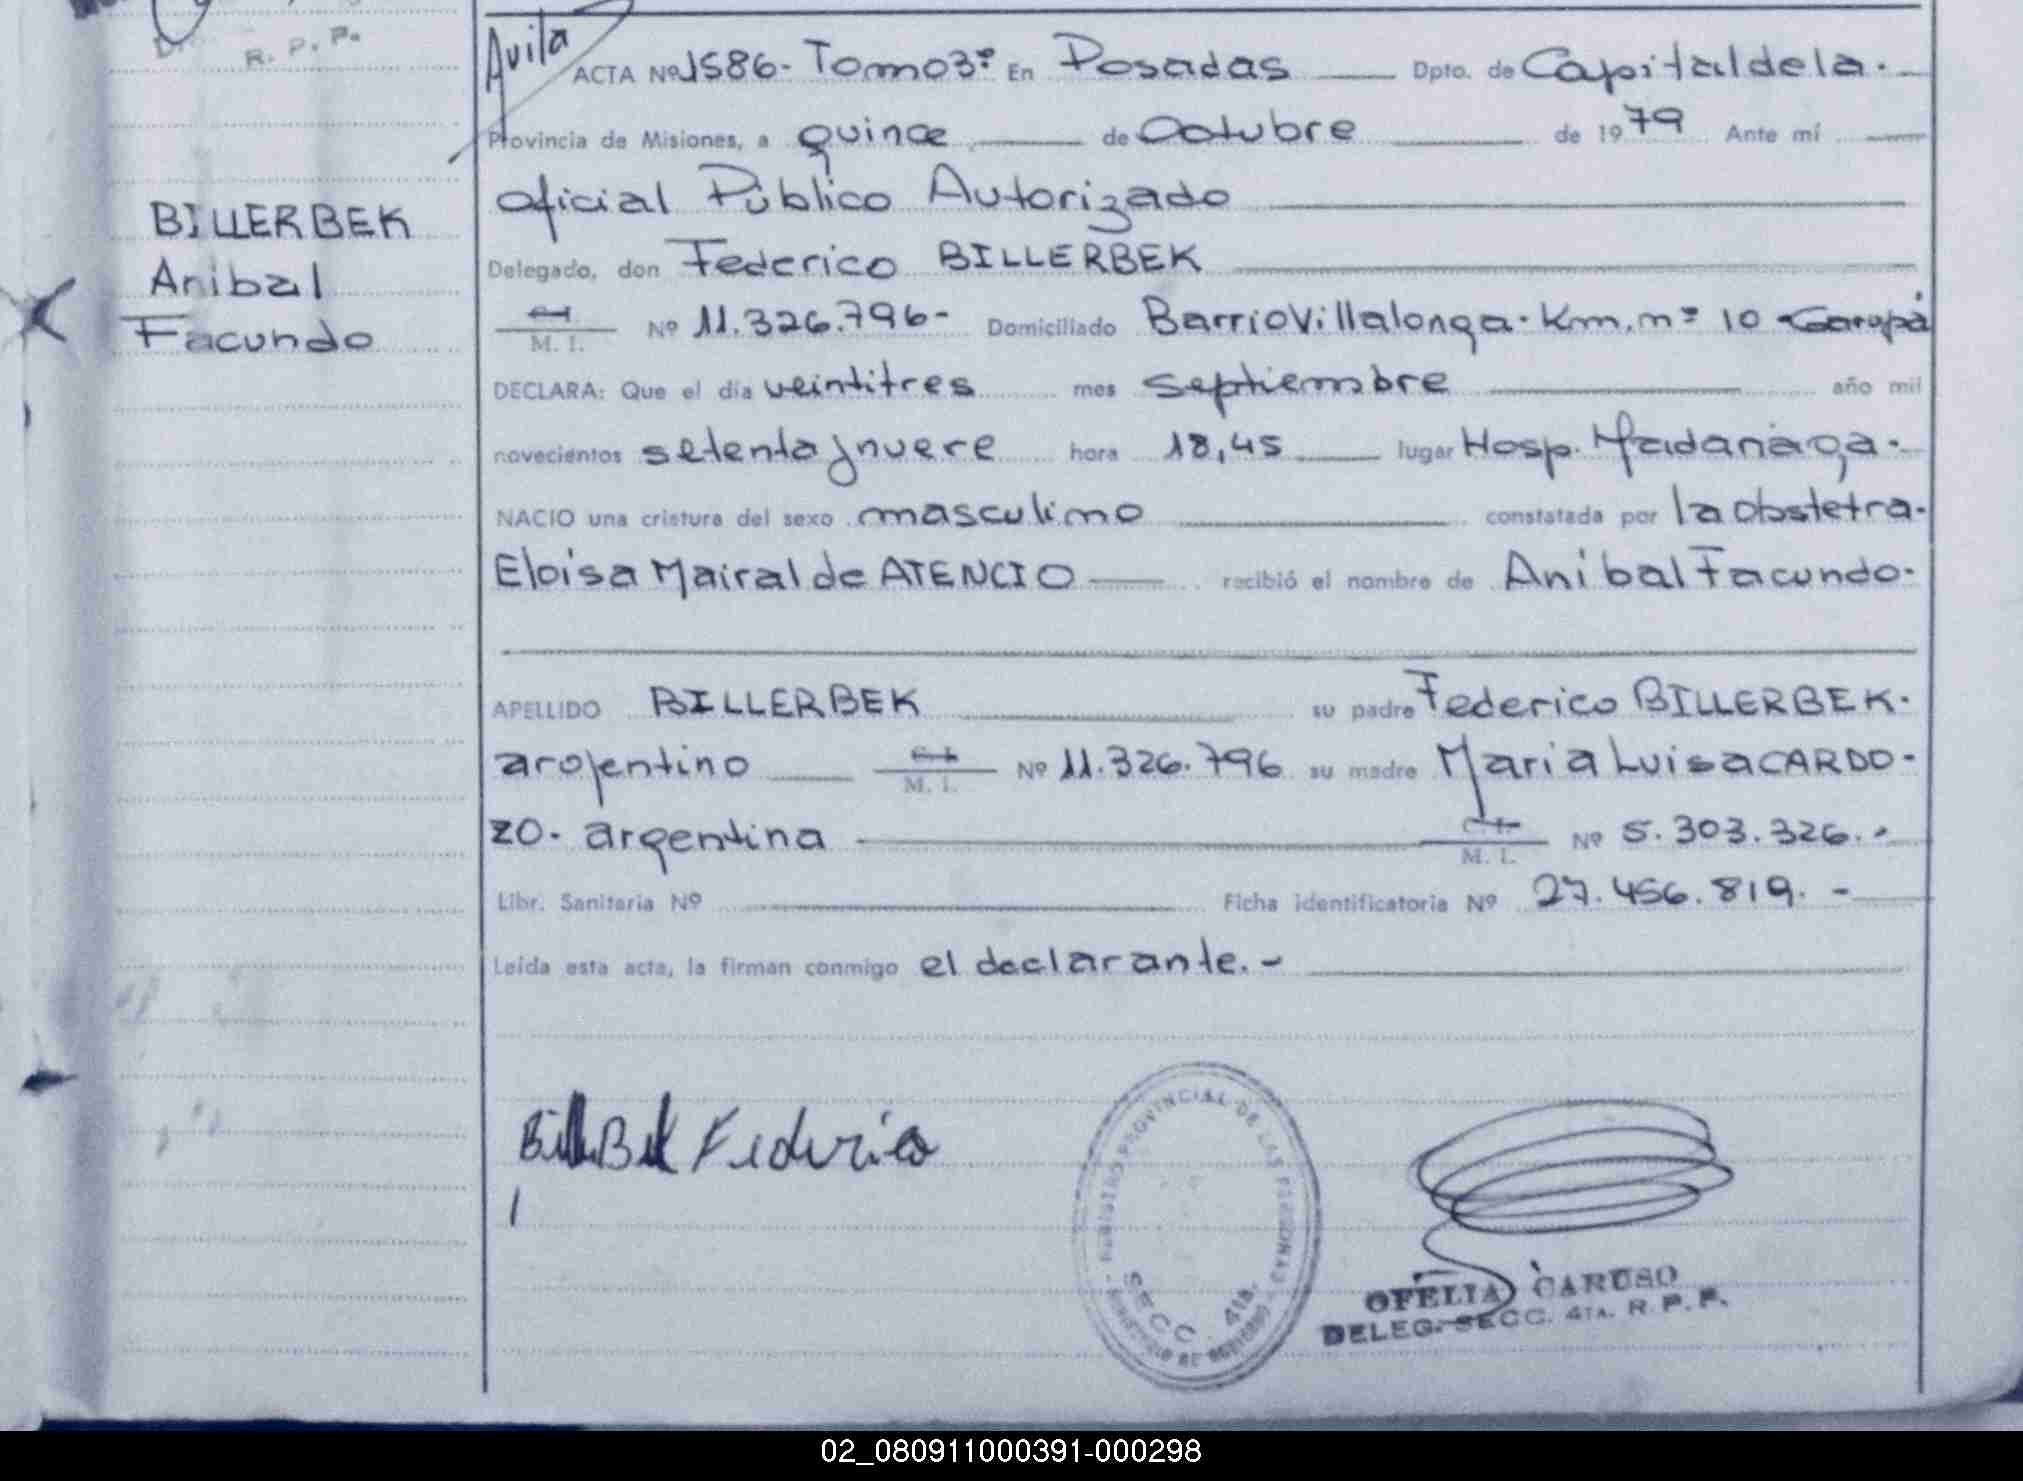 R. P. P.
Avila
ACTA Nº 1586- Tomo 3º En Posadas Dpto. de Capital de la.
Provincia de Misiones, a quince de Octubre de 1979 Ante mí
oficial Público Autorizado
BILLERBEK
Anibal
Facundo
Delegado, don Federico BILLERBEK
M. I. Nº 11.326.796- Domiciliado Barrio Villalonga. Km. nº 10 Garupá
DECLARA: Que el día veintitres mes septiembre año mil
novecientos setenta y nueve hora 18,45 lugar Hosp. Madariaga.
NACIO una cristura del sexo masculino constatada por la obstetra.
Eloisa Mairal de ATENCIO recibió el nombre de Anibal Facundo.
APELLIDO BILLERBEK su padre Federico BILLERBEK.
argentino C. I. M. I. Nº 11.326.796 su madre Maria Luisa CARDO-
ZO. argentina C. I. M. I. Nº 5.303.326.-
Libr. Sanitaria Nº Ficha identificatoria Nº 27.456.819.-
Leída esta acta, la firman conmigo el declarante.-
BillerBek Federico
REGISTRO PROVINCIAL DE LAS PERSONAS
SECC. 4ta.
MINISTERIO DE GOBIERNO
OFELIA CARUSO
DELEG. SECC. 4TA. R. P. P.
02_080911000391-000298